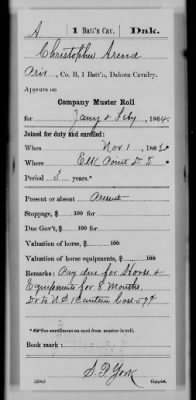 A 1 Batt'n Cav. Dak.
Christopher Arend
Priv, Co. B, 1 Batt'n, Dakota Cavalry.
Appears on
Company Muster Roll
for Jany & Feby, 1864.
Joined for duty and enrolled:
When Nov 1, 186
Where Elk Point D. T.
Period 3 years.*
Present or absent Present
Stoppage, $ 100 for
Due Gov't, $ 100 for
Valuation of horse, $ 100
Valuation of horse equipments, $ 100
Remarks: Pay due for Horse &
Equipments for 8 Months.
Dr to U.S. 1 Canteen Cost 59¢
enrollment on card from muster-in roll.
Book mark:
S. P. York
Copyist.